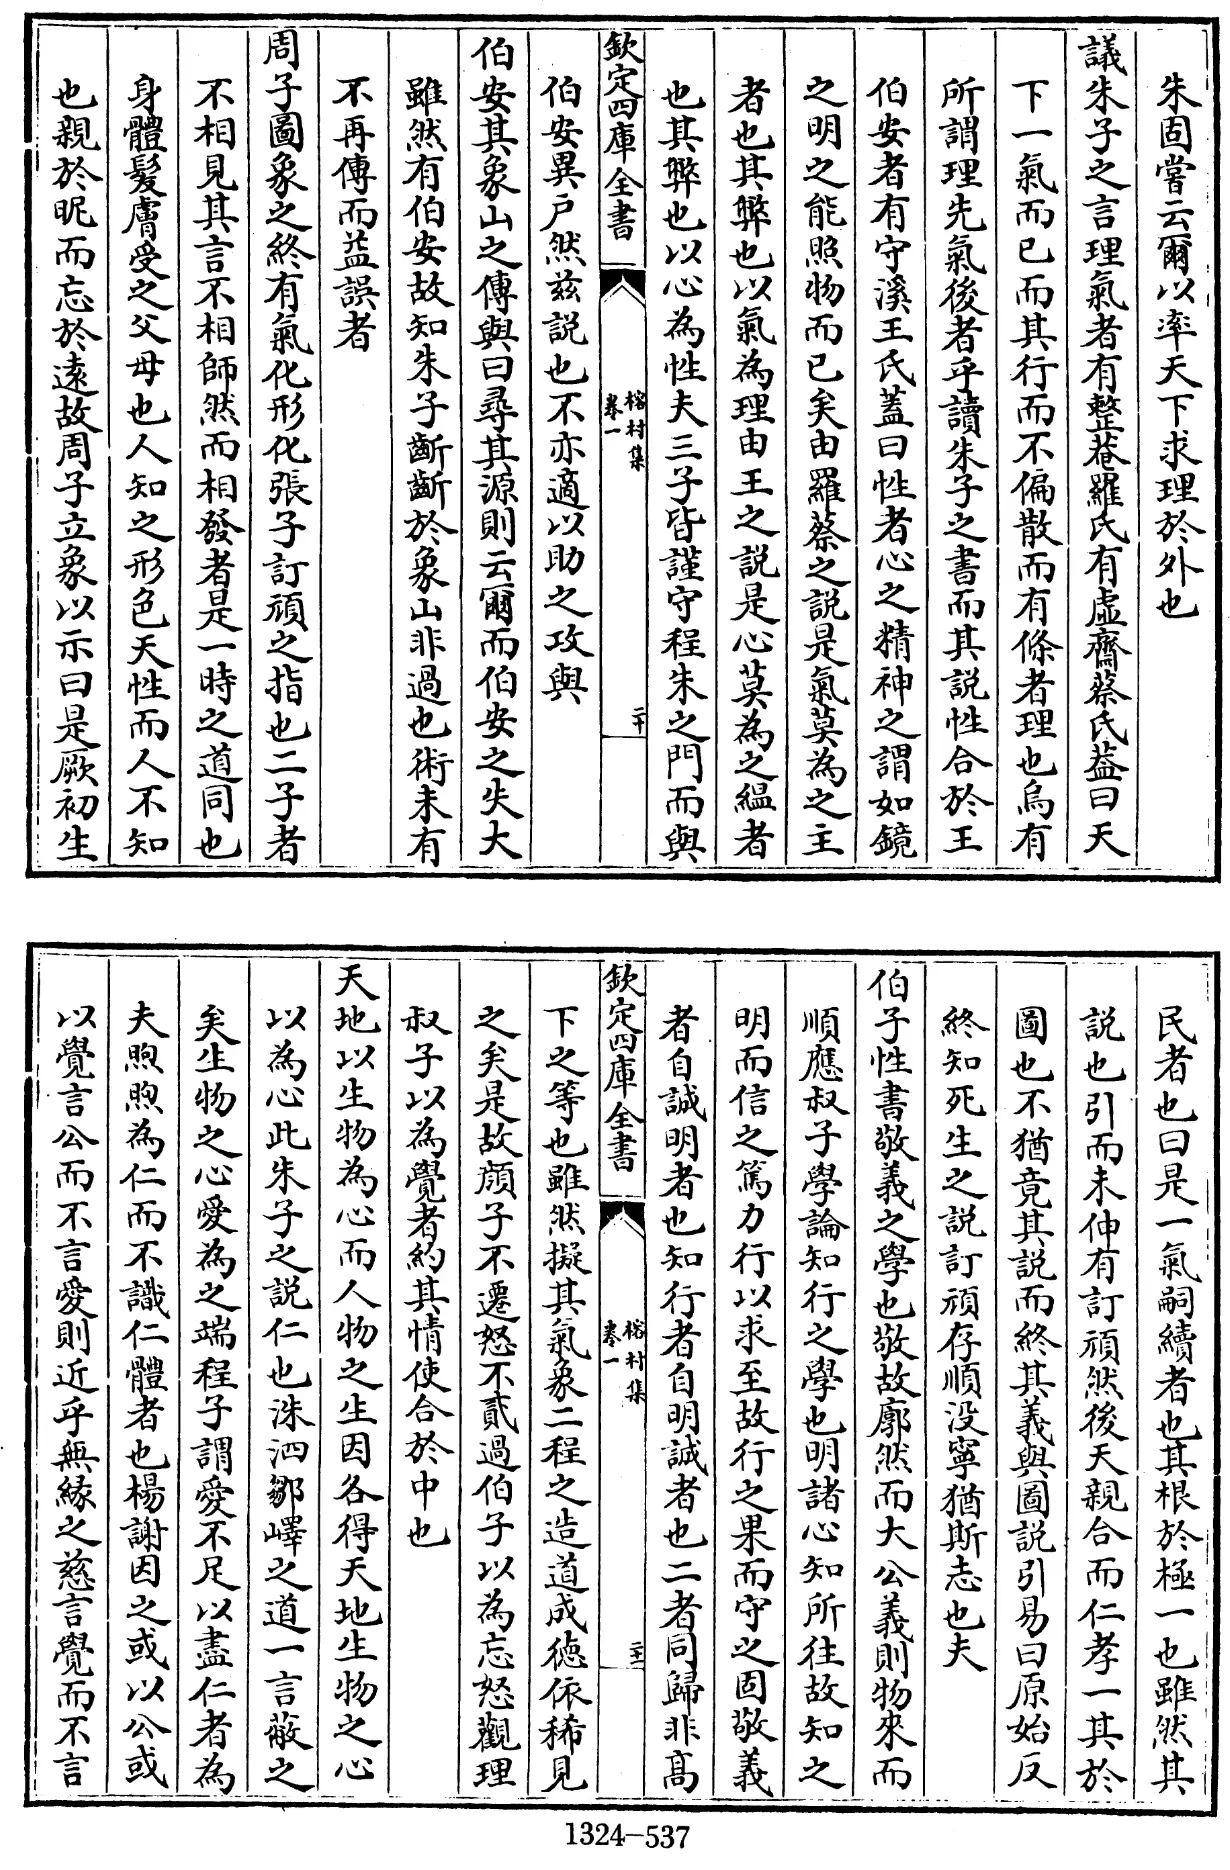 朱固嘗云爾以率天下求理於外也
議朱子之言理氣者有整菴羅氏有虛齋蔡氏蓋曰天
下一氣而已而其行而不偏散而有條者理也烏有
所謂理先氣後者乎讀朱子之書而其説性合於王
伯安者有守溪王氏蓋曰性者心之精神之謂如鏡
之明之能照物而已矣由羅蔡之説是氣莫為之主
者也其弊也以氣為理由王之説是心莫為之緼者
也其弊也以心為性夫三子皆謹守程朱之門而與
欽定四庫全書
榕村集
卷一
二十
伯安異户然兹説也不亦適以助之攻與
伯安其象山之傳與曰尋其源則云爾而伯安之失大
雖然有伯安故知朱子齗齗於象山非過也術未有
不再傳而益誤者
周子圖象之終有氣化形化張子訂頑之指也二子者
不相見其言不相師然而相發者是一時之道同也
身體髮膚受之父母也人知之形色天性而人不知
也親於昵而忘於遠故周子立象以示曰是厥初生
民者也曰是一氣嗣續者也其根於極一也雖然其
説也引而未伸有訂頑然後天親合而仁孝一其於
圖也不猶竟其説而終其義與圖説引易曰原始反
終知死生之説訂頑存順没寧猶斯志也夫
伯子性書敬義之學也敬故廓然而大公義則物來而
順應叔子學論知行之學也明諸心知所往故知之
明而信之篤力行以求至故行之果而守之固敬義
者自誠明者也知行者自明誠者也二者同歸非高
欽定四庫全書
榕村集
卷一
二十一
下之等也雖然擬其氣象二程之造道成徳依稀見
之矣是故顔子不遷怒不貳過伯子以為忘怒觀理
叔子以為覺者約其情使合於中也
天地以生物為心而人物之生因各得天地生物之心
以為心此朱子之説仁也洙泗鄒嶧之道一言蔽之
矣生物之心愛為之端程子謂愛不足以盡仁者為
夫煦煦為仁而不識仁體者也楊謝因之或以公或
以覺言公而不言愛則近乎無緣之慈言覺而不言
1324-537